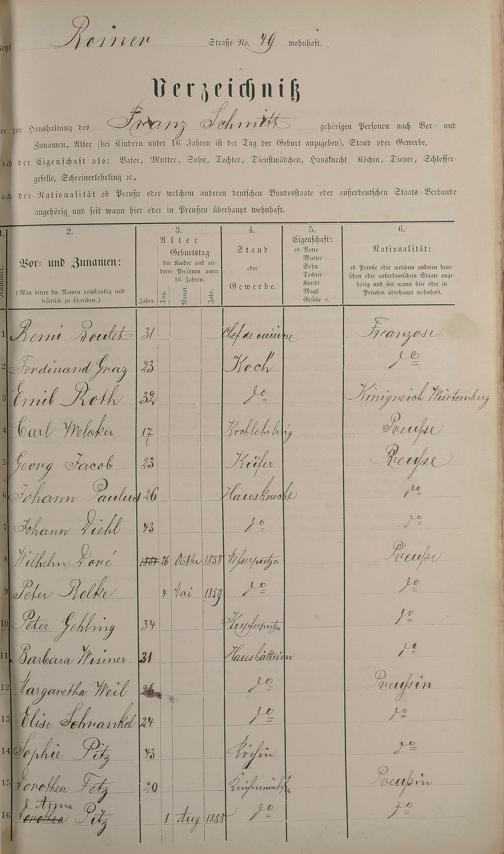 Römer Straße No. 49 wohnhaft.
Verzeichniß
der zur Haushaltung des Franz Schmitt gehörigen Personen nach Vor- und
Zunamen, Alter (bei Kindern unter 16 Jahren ist der Tag der Geburt anzugeben), Stand oder Gewerbe,
nach der Eigenschaft als: Vater, Mutter, Sohn, Tochter, Dienstmädchen, Hausknecht, Köchin, Diener, Schlosser-
geselle, Schreinerlehrling ꝛc.,
nach der Nationalität ob Preuße oder welchem anderen deutschen Bundesstaate oder außerdeutschen Staats-Verbande
angehörig und seit wann hier oder in Preußen überhaupt wohnhaft.
1. 2. 3. 4. 5. 6.
Nummer.
Vor- und Zunamen:
(Man bittet die Namen vollständig und
leserlich zu schreiben.)
Alter
Geburtstag
der Kinder und an-
derer Personen unter
16 Jahren.
Jahre Tag. Monat. Jahr.
Stand
oder
Gewerbe.
Eigenschaft:
ob Vater
Mutter
Sohn
Tochter
Knecht
Magd
Geselle ꝛc.
Nationalität:
ob Preuße oder welchem anderen deut-
schen oder außerdeutschen Staate ange-
hörig und seit wann hier oder in
Preußen überhaupt wohnhaft.
1 Remi Boulet 31 Chef de cuisine Franzose
2 Ferdinand Graz 23 Koch do
3 Emil Roth 32 do Königreich Würtemberg
4 Carl Weloker 17 Preuße
5 Georg Jacob 23 Küfer Preuße
6 Johann Paulus 26 Hausknecht do
7 Johann Diehl 43 do do
8 Wilhelm Doré 26 Octbr 1858 Messerputzer Preuße
9 Peter Relke 4 Mai 1859 do do
10 Peter Gehling 34 Kupferputzer do
11 Barbara Wisner 31 Haushälterin do
12 Margaretha Weil do Preußin
13 Elise Schrankel 24 do do
14 Sophie Pitz 43 Köchin do
15 Dorothea Fetz 20 Preußin
16 Anna Pitz 1 Aug 1858 do do